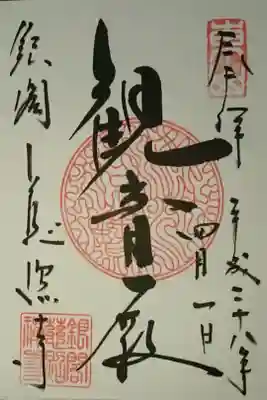 奉拝 平成二十八年
四月一日
観音殿
銀閣 慈照寺